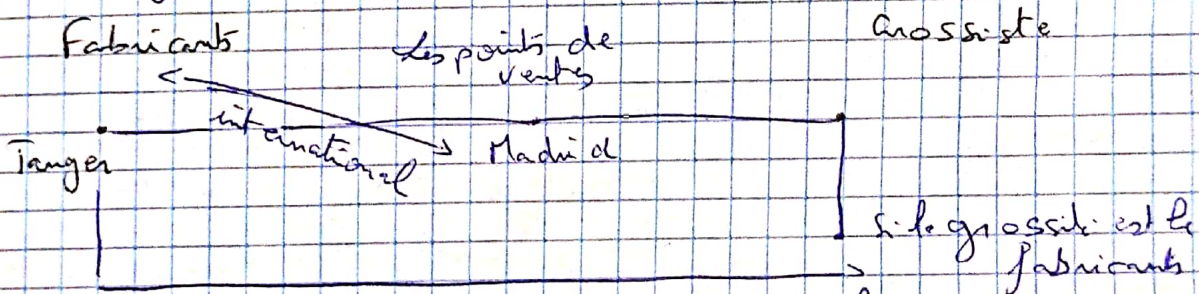 Fabricants
Les points de
ventes
Grossiste
international
Tanger
Madrid
Si le grossite est le
fabricants